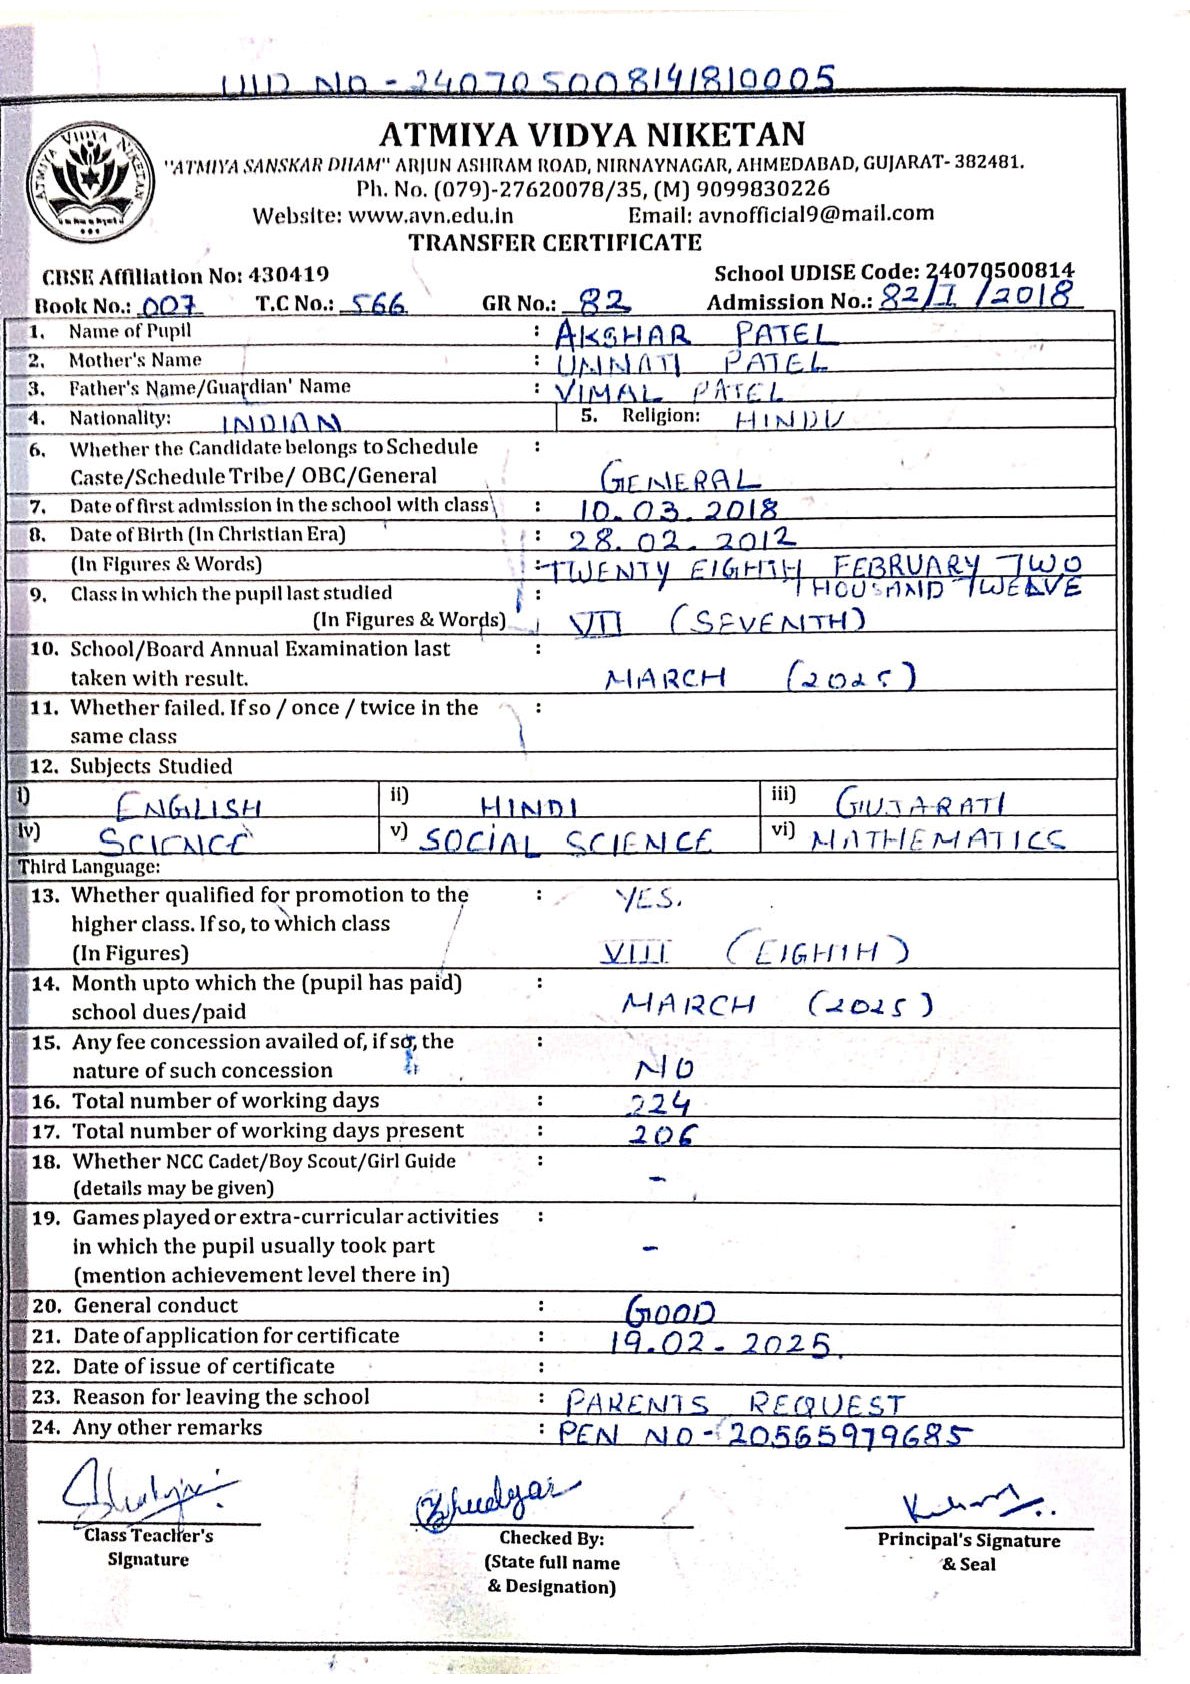 UID NO - 240705008141810005
ATMIYA VIDYA NIKETAN
ATMIYA VIDYA NIKETAN
"ATMIYA SANSKAR DHAM" ARJUN ASHRAM ROAD, NIRNAYNAGAR, AHMEDABAD, GUJARAT- 382481.
Ph. No. (079)-27620078/35, (M) 9099830226
Website: www.avn.edu.in Email: avnofficial9@mail.com
TRANSFER CERTIFICATE
CBSE Affiliation No: 430419 School UDISE Code: 24070500814
Book No.: 007 T.C No.: 566 GR No.: 82 Admission No.: 82/I/2018
1. Name of Pupil : AKSHAR PATEL
2. Mother's Name : UNNATI PATEL
3. Father's Name/Guardian' Name : VIMAL PATEL
4. Nationality: INDIAN 5. Religion: HINDU
6. Whether the Candidate belongs to Schedule :
Caste/Schedule Tribe/ OBC/General GENERAL
7. Date of first admission in the school with class : 10.03.2018
8. Date of Birth (In Christian Era) : 28.02.2012
(In Figures & Words) :- TWENTY EIGHTH FEBRUARY TWO
THOUSAND TWELVE
9. Class in which the pupil last studied :
(In Figures & Words) VII (SEVENTH)
10. School/Board Annual Examination last :
taken with result. MARCH (2025)
11. Whether failed. If so / once / twice in the :
same class
12. Subjects Studied
i) ENGLISH ii) HINDI iii) GUJARATI
iv) SCIENCE v) SOCIAL SCIENCE vi) MATHEMATICS
Third Language:
13. Whether qualified for promotion to the : YES.
higher class. If so, to which class
(In Figures) VIII (EIGHTH)
14. Month upto which the (pupil has paid) :
school dues/paid MARCH (2025)
15. Any fee concession availed of, if so, the :
nature of such concession NO
16. Total number of working days : 224
17. Total number of working days present : 206
18. Whether NCC Cadet/Boy Scout/Girl Guide :
(details may be given) -
19. Games played or extra-curricular activities :
in which the pupil usually took part -
(mention achievement level there in)
20. General conduct : GOOD
21. Date of application for certificate : 19.02-2025.
22. Date of issue of certificate :
23. Reason for leaving the school : PARENTS REQUEST
24. Any other remarks : PEN NO - 20565979685
Class Teacher's
Signature
Checked By:
(State full name
& Designation)
Principal's Signature
& Seal